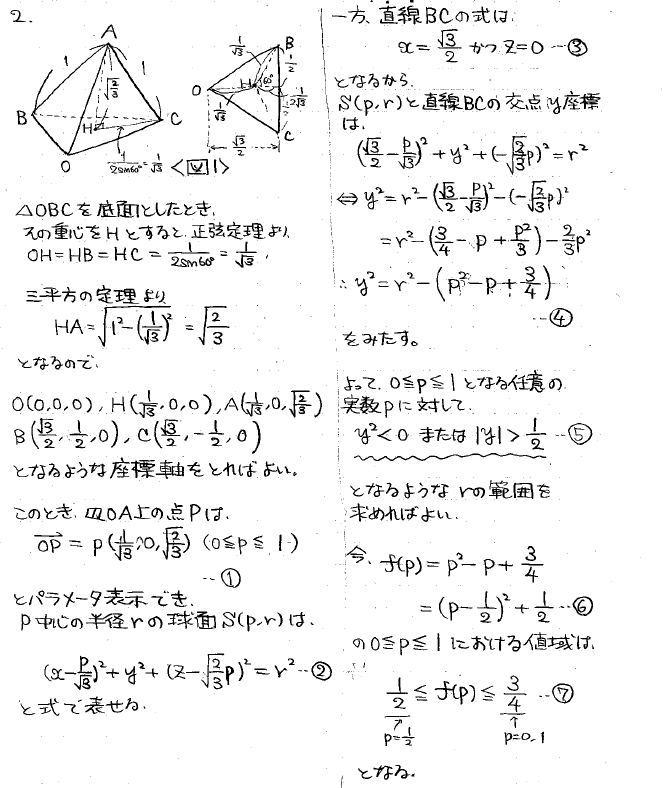 2.
A
1
1
√(2/3)
B
H
C
O
1/(2sin60°) = 1/√3
<図1>
1/√3
B
1/2
O
H
60°
1/√3
C
√3/2
△OBCを底面としたとき、
その重心をHとすると、正弦定理より、
OH=HB=HC= 1/(2sin60°) = 1/√3,
三平方の定理より
HA=√(1²-(1/√3)²) = √(2/3)
となるので、
O(0,0,0), H(1/√3,0,0), A(1/√3,0,√(2/3))
B(√3/2, 1/2, 0), C(√3/2, -1/2, 0)
となるような座標軸をとればよい。
このとき、辺OA上の点Pは、
OP = p(1/√3, 0, √(2/3)) (0≦p≦1)
…①
とパラメータ表示でき、
P中心の半径rの球面S(p,r)は、
(x-p/√3)²+y²+(z-√(2/3)p)²=r² …②
と式で表せる。
一方、直線BCの式は、
x=√3/2 かつ z=0 …③
となるから、
S(p,r)と直線BCの交点y座標
は、
(√3/2-p/√3)²+y²+(-√(2/3)p)²=r²
⇔ y²=r²-(√3/2-p/√3)²-(-√(2/3)p)²
=r²-(3/4-p+p²/3)-2/3p²
∴ y²=r²-(p²-p+3/4)
…④
をみたす。
よって、0≦p≦1となる任意の
実数pに対して、
y²<0 または |y|>1/2 …⑤
となるようなrの範囲を
求めればよい。
今、f(p)=p²-p+3/4
=(p-1/2)²+1/2 …⑥
の0≦p≦1における値域は、
1/2≦f(p)≦3/4 …⑦
↑
p=1/2
↑
p=0,1
となる。